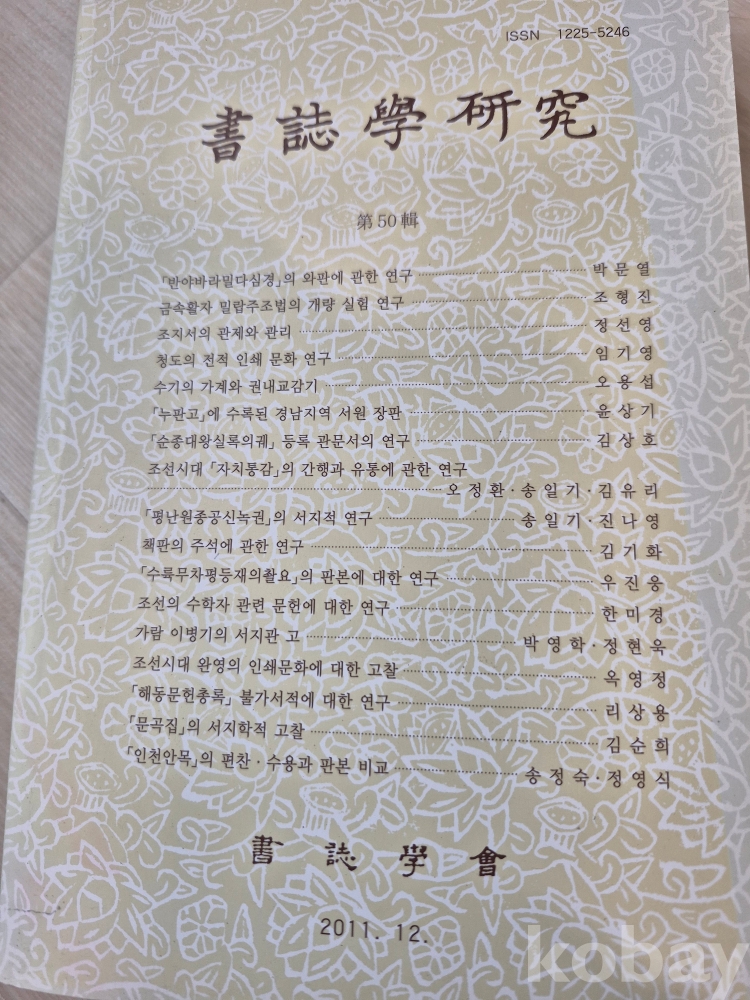 ISSN 1225-5246
書誌學研究
第50輯
「반야바라밀다심경」의 와판에 관한 연구 박문열
금속활자 밀랍주조법의 개량 실험 연구 조형진
조지서의 관제와 관리 정선영
청도의 전적 인쇄 문화 연구 임기영
수기의 가계와 권내교감기 오용섭
「누판고」에 수록된 경남지역 서원 장판 윤상기
「순종대왕실록의궤」 등록 관문서의 연구 김상호
조선시대 「자치통감」의 간행과 유통에 관한 연구
오정환·송일기·김유리
「평난원종공신녹권」의 서지적 연구 송일기·진나영
책판의 주석에 관한 연구 김기화
「수륙무차평등재의촬요」의 판본에 대한 연구 우진웅
조선의 수학자 관련 문헌에 대한 연구 한미경
가람 이병기의 서지관 고 박영학·정현욱
조선시대 완영의 인쇄문화에 대한 고찰 옥영정
「해동문헌총록」 불가서적에 대한 연구 리상용
「문곡집」의 서지학적 고찰 김순희
「인천안목」의 편찬·수용과 판본 비교 송정숙·정영식
書誌學會
2011. 12.
kobay